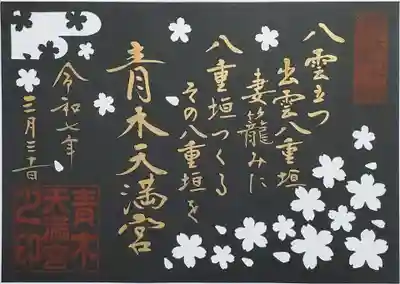 八雲立つ
出雲八重垣
妻籠みに
八重垣つくる
その八重垣を
青木天満宮
令和七年
三月
青木
天満宮
之印